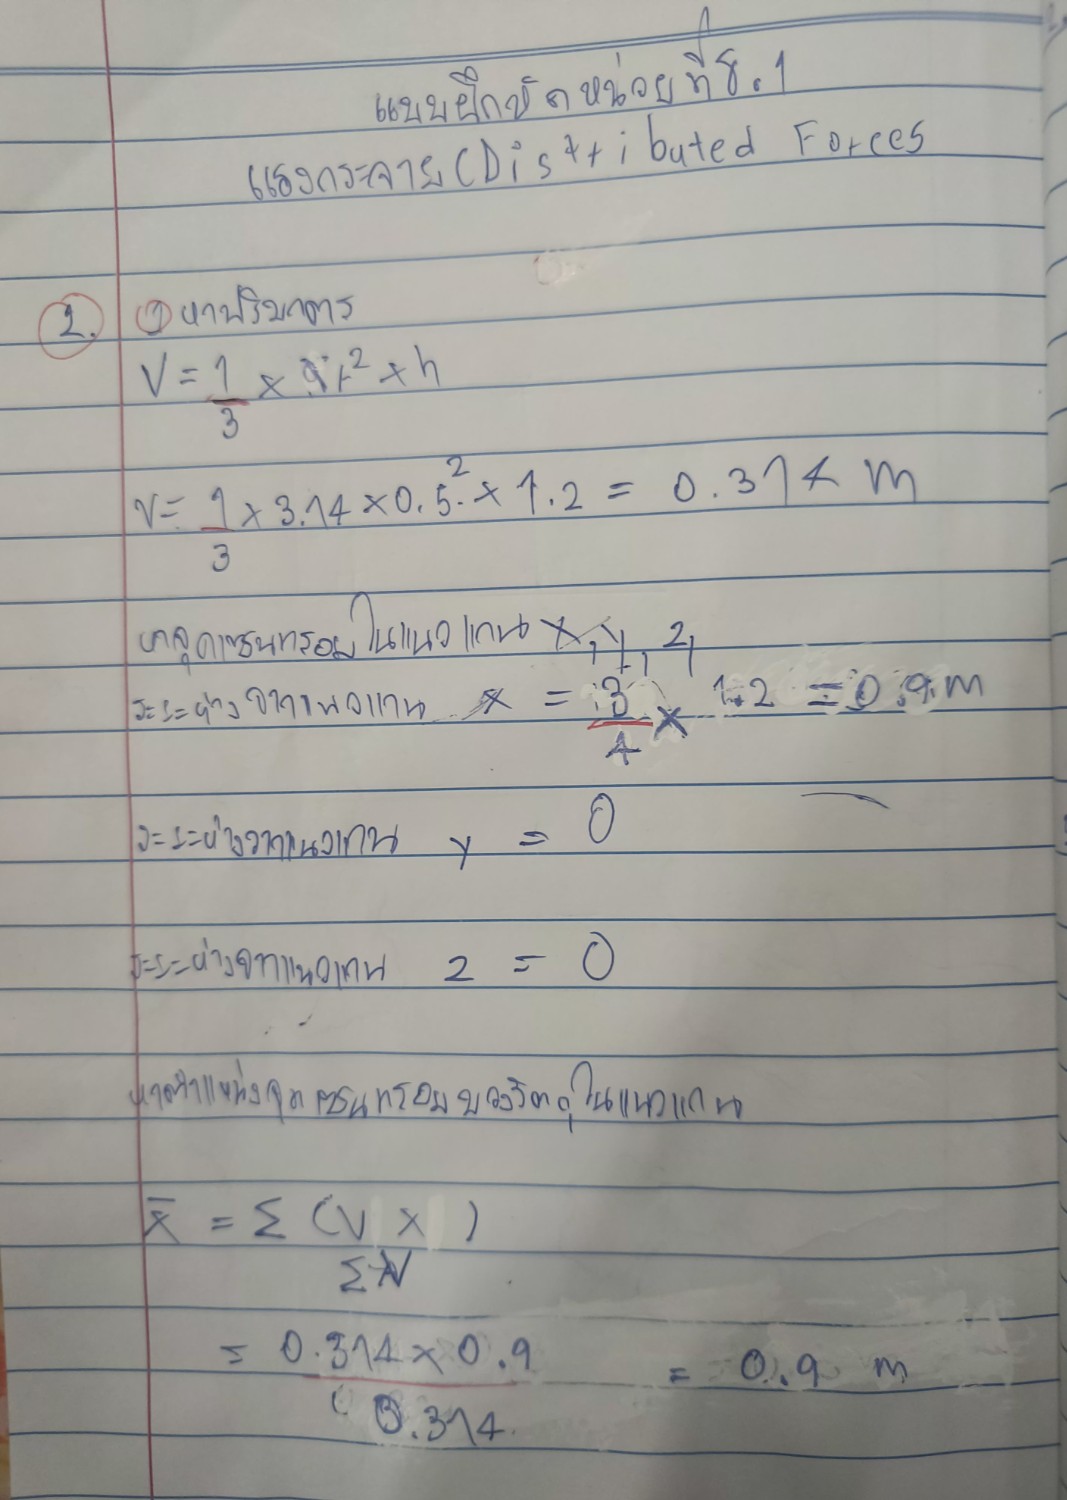 แบบฝึกหัดหน่วยที่ 8.1
แรงกระจาย (Distributed Forces
2. 1 หาปริมาตร
V = 1/3 × πr² × h
V = 1/3 × 3.14 × 0.5² × 1.2 = 0.314 m
หาจุดเซนทรอยในแนวแกน x, y, z
ระยะห่างจากแนวแกน x = 3/4 × 1.2 = 0.9 m
ระยะห่างจากแนวแกน y = 0
ระยะห่างจากแนวแกน z = 0
หาตำแหน่งจุดเซนทรอยของวัตถุในแนวแกน
x̄ = Σ(V x) / ΣV
= 0.314 × 0.9 / 0.314 = 0.9 m